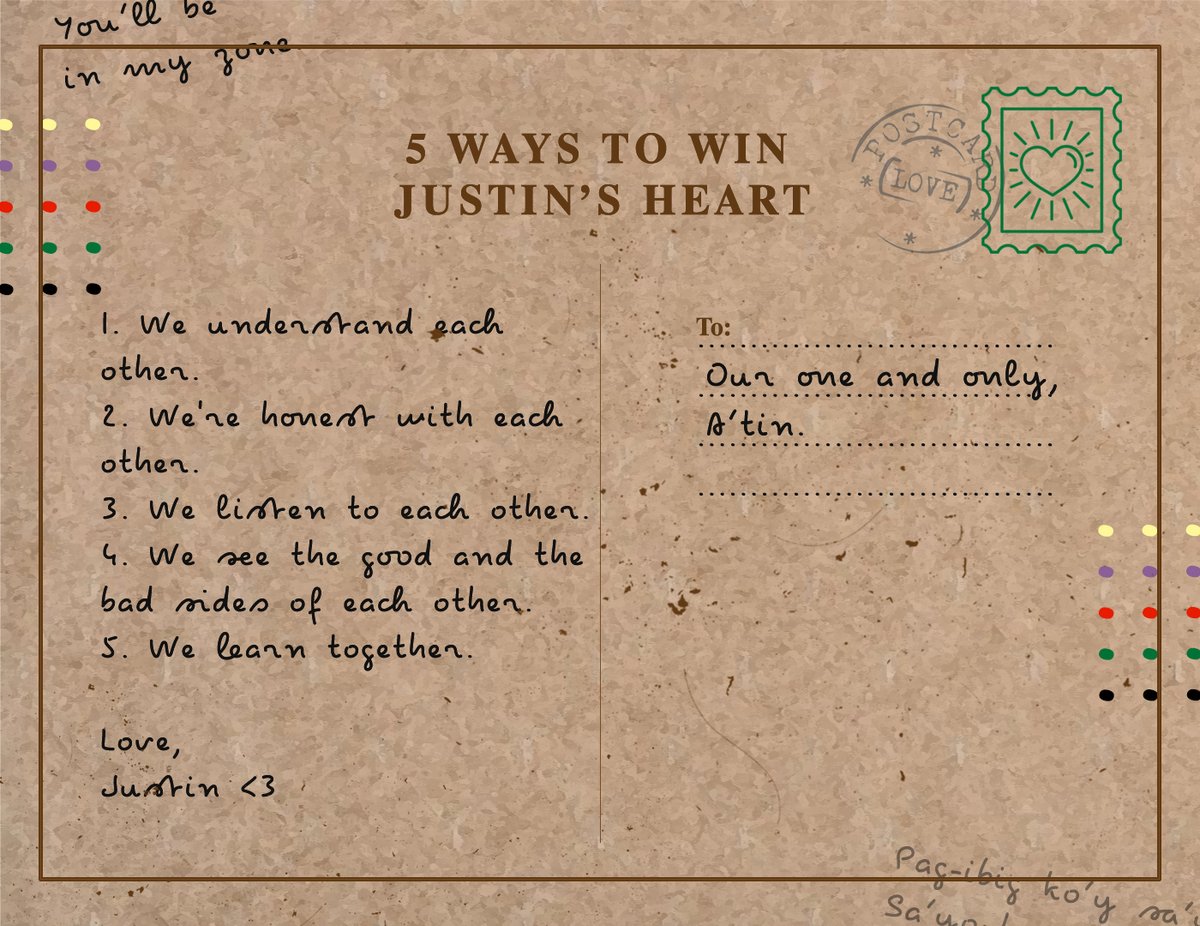 You'll be
in my zone.
5 WAYS TO WIN
JUSTIN'S HEART
POSTCARD
LOVE
1. We understand each
other.
2. We're honest with each
other.
3. We listen to each other.
4. We see the good and the
bad sides of each other.
5. We learn together.
Love,
Justin <3
To:
Our one and only,
A'tin.
Pag-ibig ko'y sa'
Sa'yo